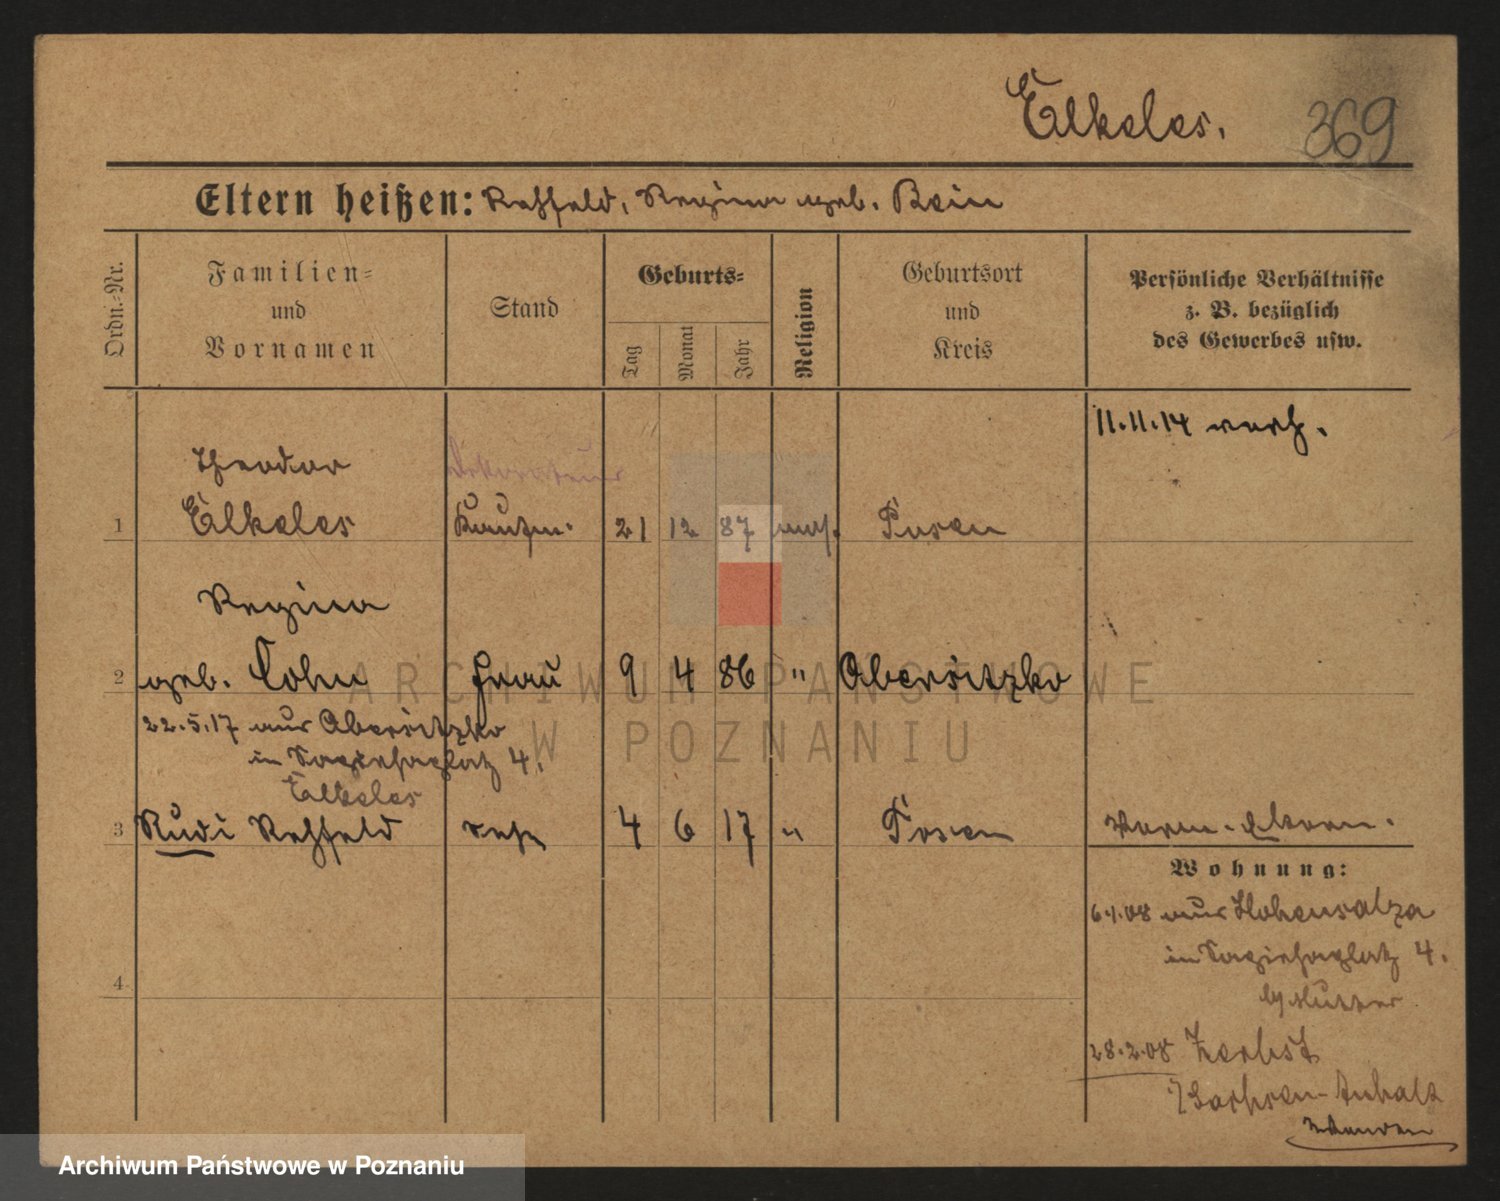 Elkeles.
369
Eltern heißen: Rehfeld, Regina geb. Bein
Ordn.-Nr.
Familien-
und
Vornamen
Stand
Geburts-
Tag
Monat
Jahr
Religion
Geburtsort
und
Kreis
Persönliche Verhältnisse
z. B. bezüglich
des Gewerbes usw.
11.11.14 verh.
Theodor
Dekorateur
1 Elkeles Kaufm. 21 12 87 mos. Posen
Regina
2 geb. Cohn Frau 9 4 86 " Obersitzko
22.5.17 aus Obersitzko
in Sapiehaplatz 4.
Elkeles
3 Rudi Rehfeld 4 6 17 " Posen
Wohnung:
6.1.08 aus Hohensalza
in Sapiehaplatz 4.
b/ Mutter
28.2.08 Zerbst
Sachsen-Anhalt
4
ARCHIWUM PAŃSTWOWE
W POZNANIU
Archiwum Państwowe w Poznaniu